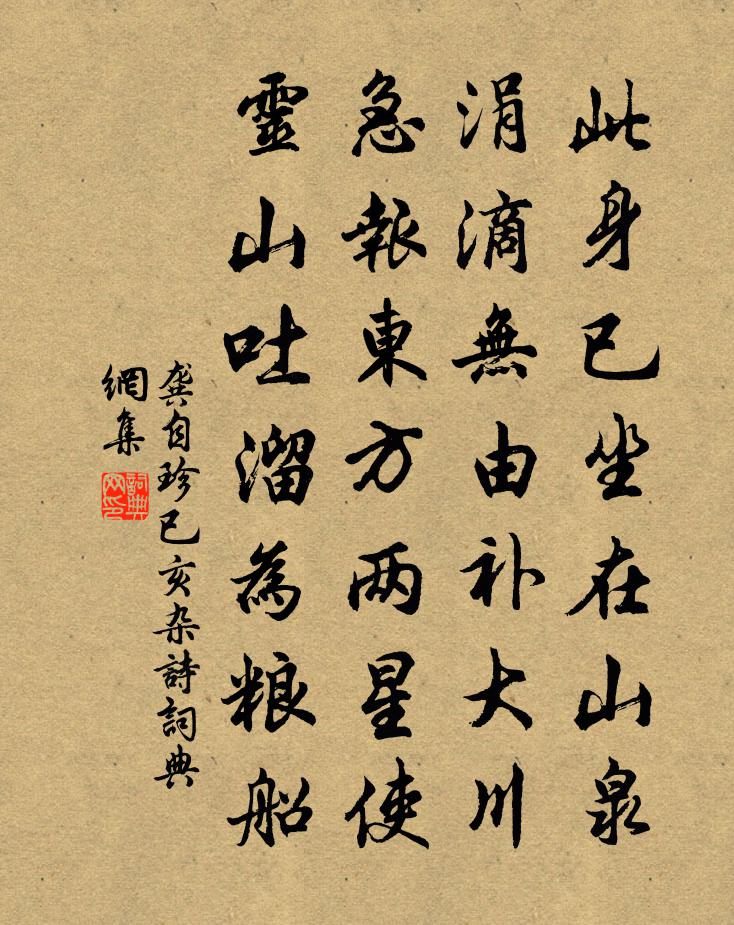 此身已坐在山泉
涓滴無由补大川
急報東方两星使
靈山吐溜為粮船
龚自珍已亥杂詩詞典
網集
詞典
网印